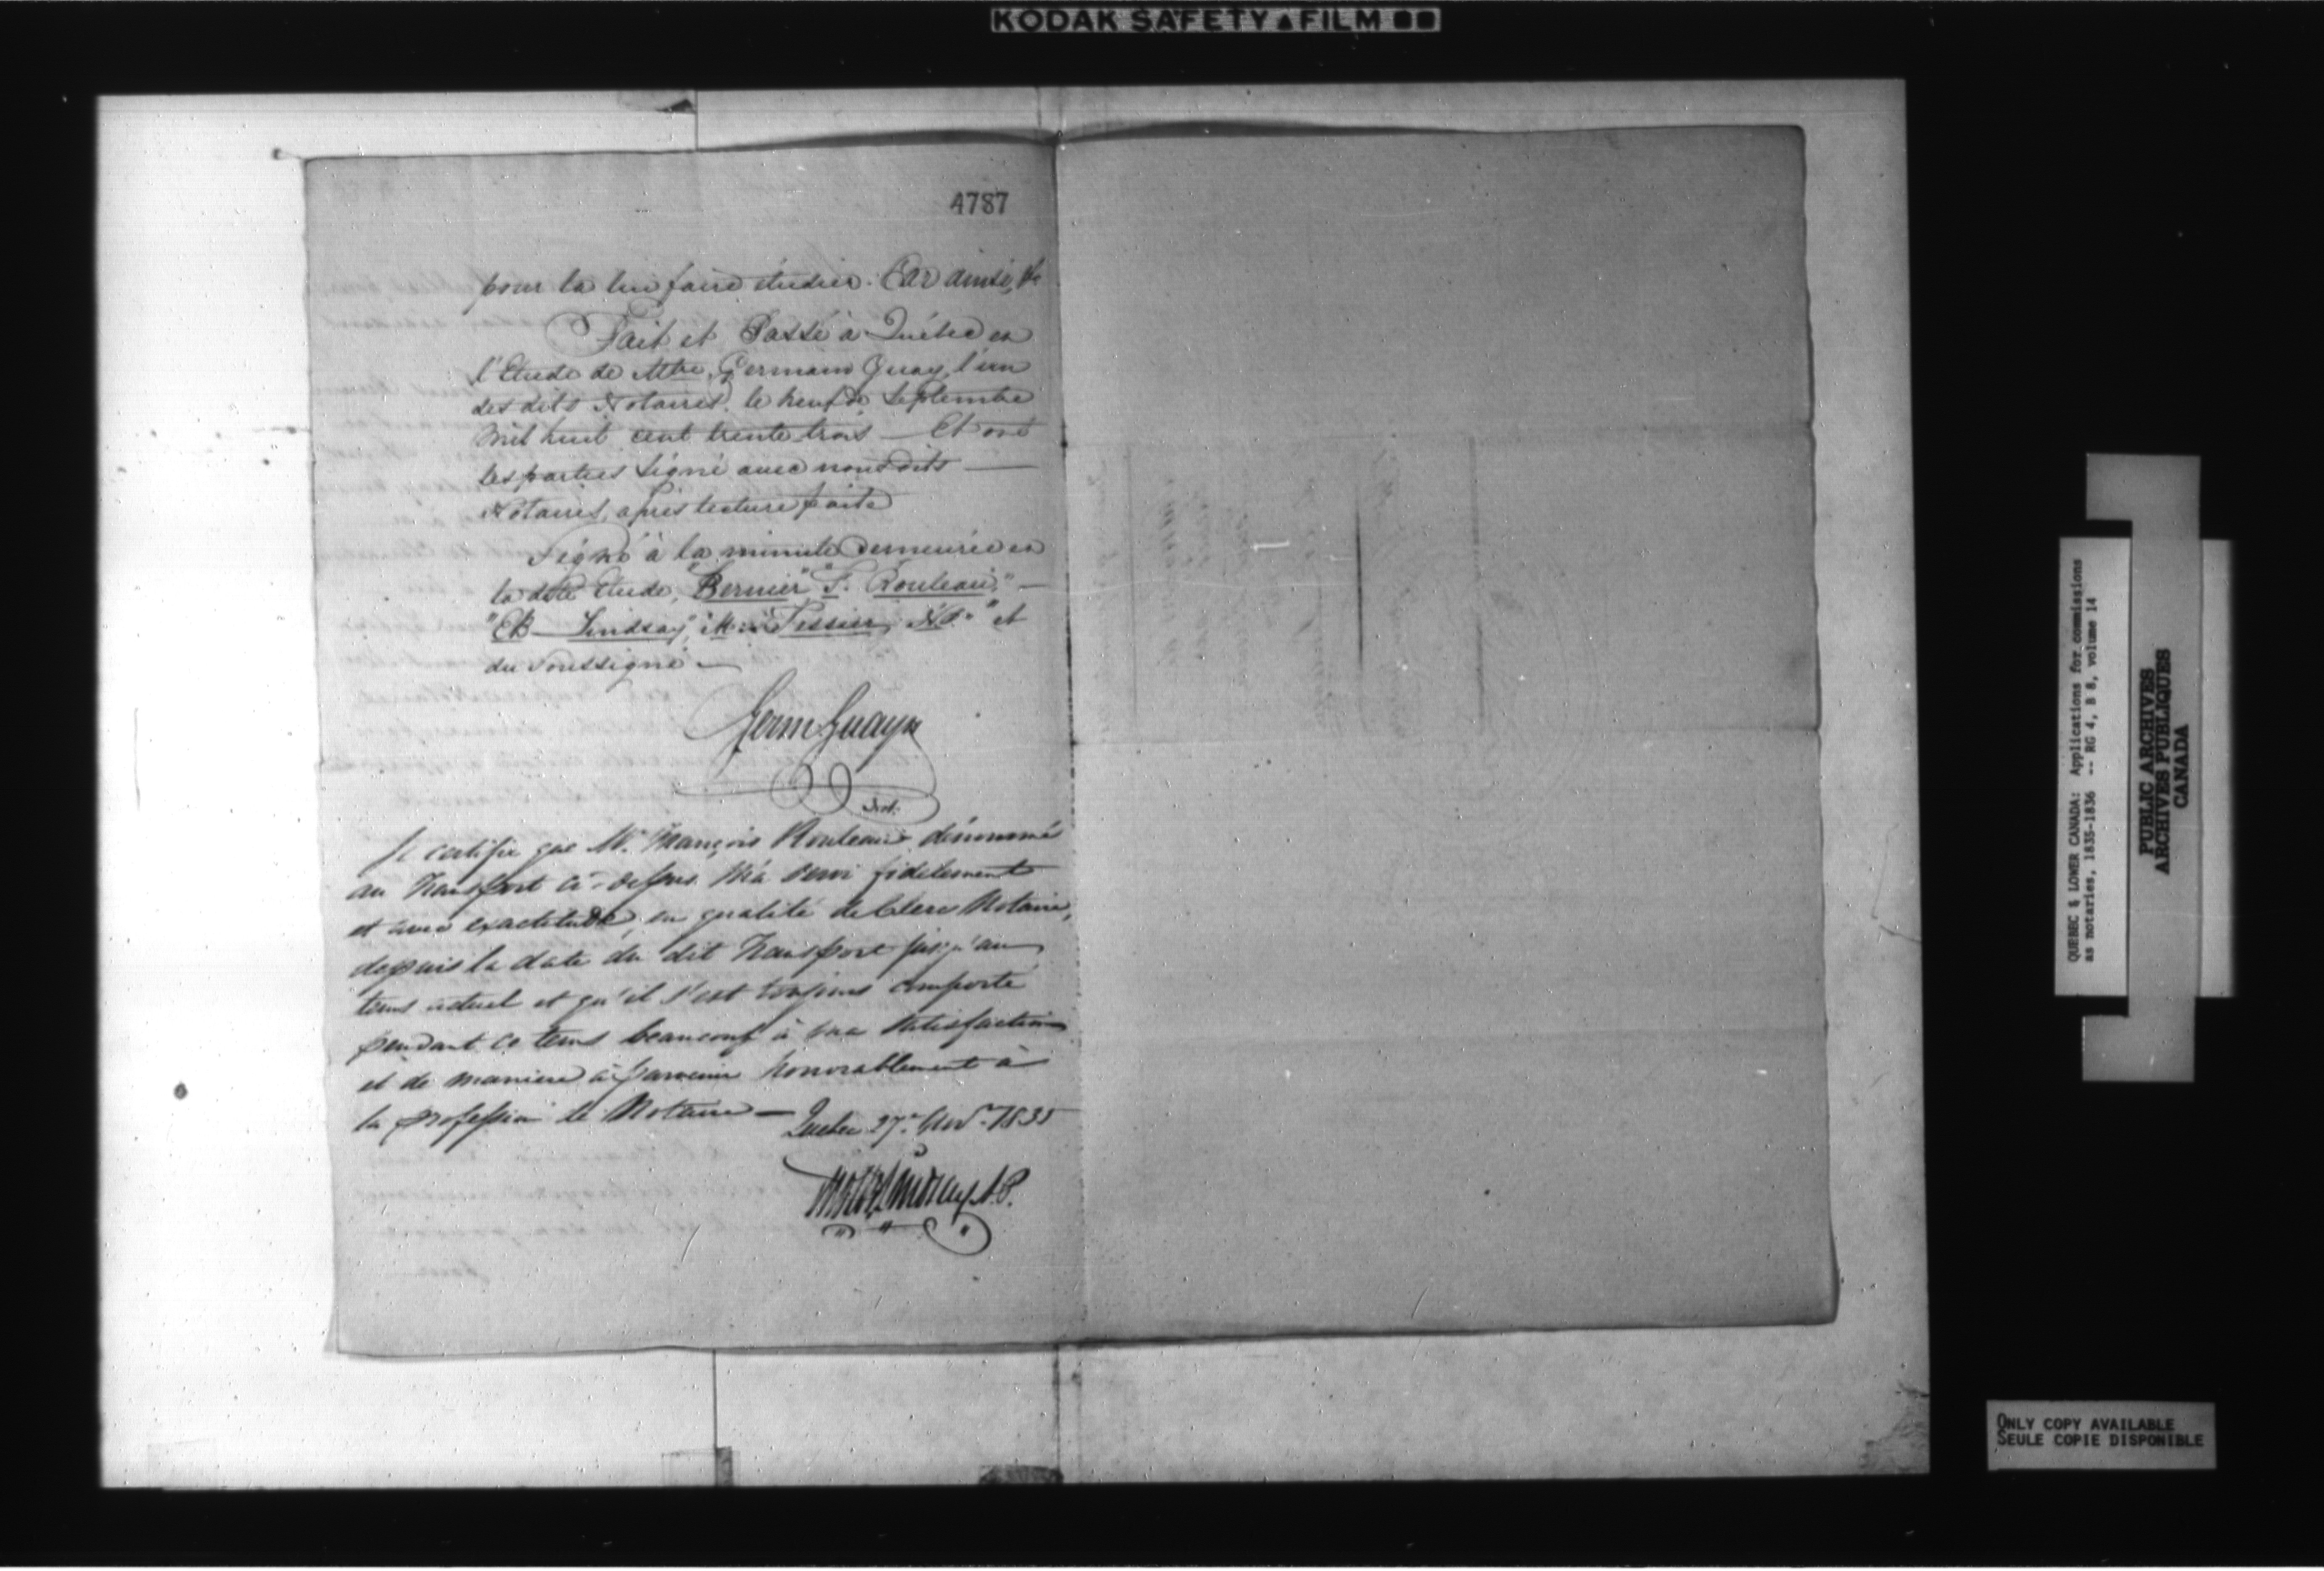 KODAK SAFETY FILM
4787
pour la lui faire étudier. Car ainsi, &c
Fait et Passé à Québec en
l'Etude de Mtre Germain Guay, l'un
des dits Notaires, le neuf de Septembre
Mil huit cent trente trois — Et ont
les parties Signé avec nous dits —
Notaires, après lecture faite
Signé à la minute demeurée en
la dite Etude, "Bernier" "F. Rouleau," —
"EB Lindsay," "M: Tessier, N.P." et
du Soussigné —
Germ Guay
Not.
Je certifie que Mr. François Rouleau dénommé
au Transport ci-dessus m'a servi fidèlement
et avec exactitude, en qualité de Clerc Notaire,
depuis la date du dit Transport jusqu'au
tems actuel et qu'il s'est toujours comporté
pendant ce tems beaucoup à ma satisfaction
et de maniere à parvenir honorablement à
la profession de Notaire — Québec 27e 1835
Lindsay N.P.
QUEBEC & LOWER CANADA: Applications for commissions
as notaries, 1835-1836 -- RG 4, B 8, volume 14
PUBLIC ARCHIVES
ARCHIVES PUBLIQUES
CANADA
ONLY COPY AVAILABLE
SEULE COPIE DISPONIBLE